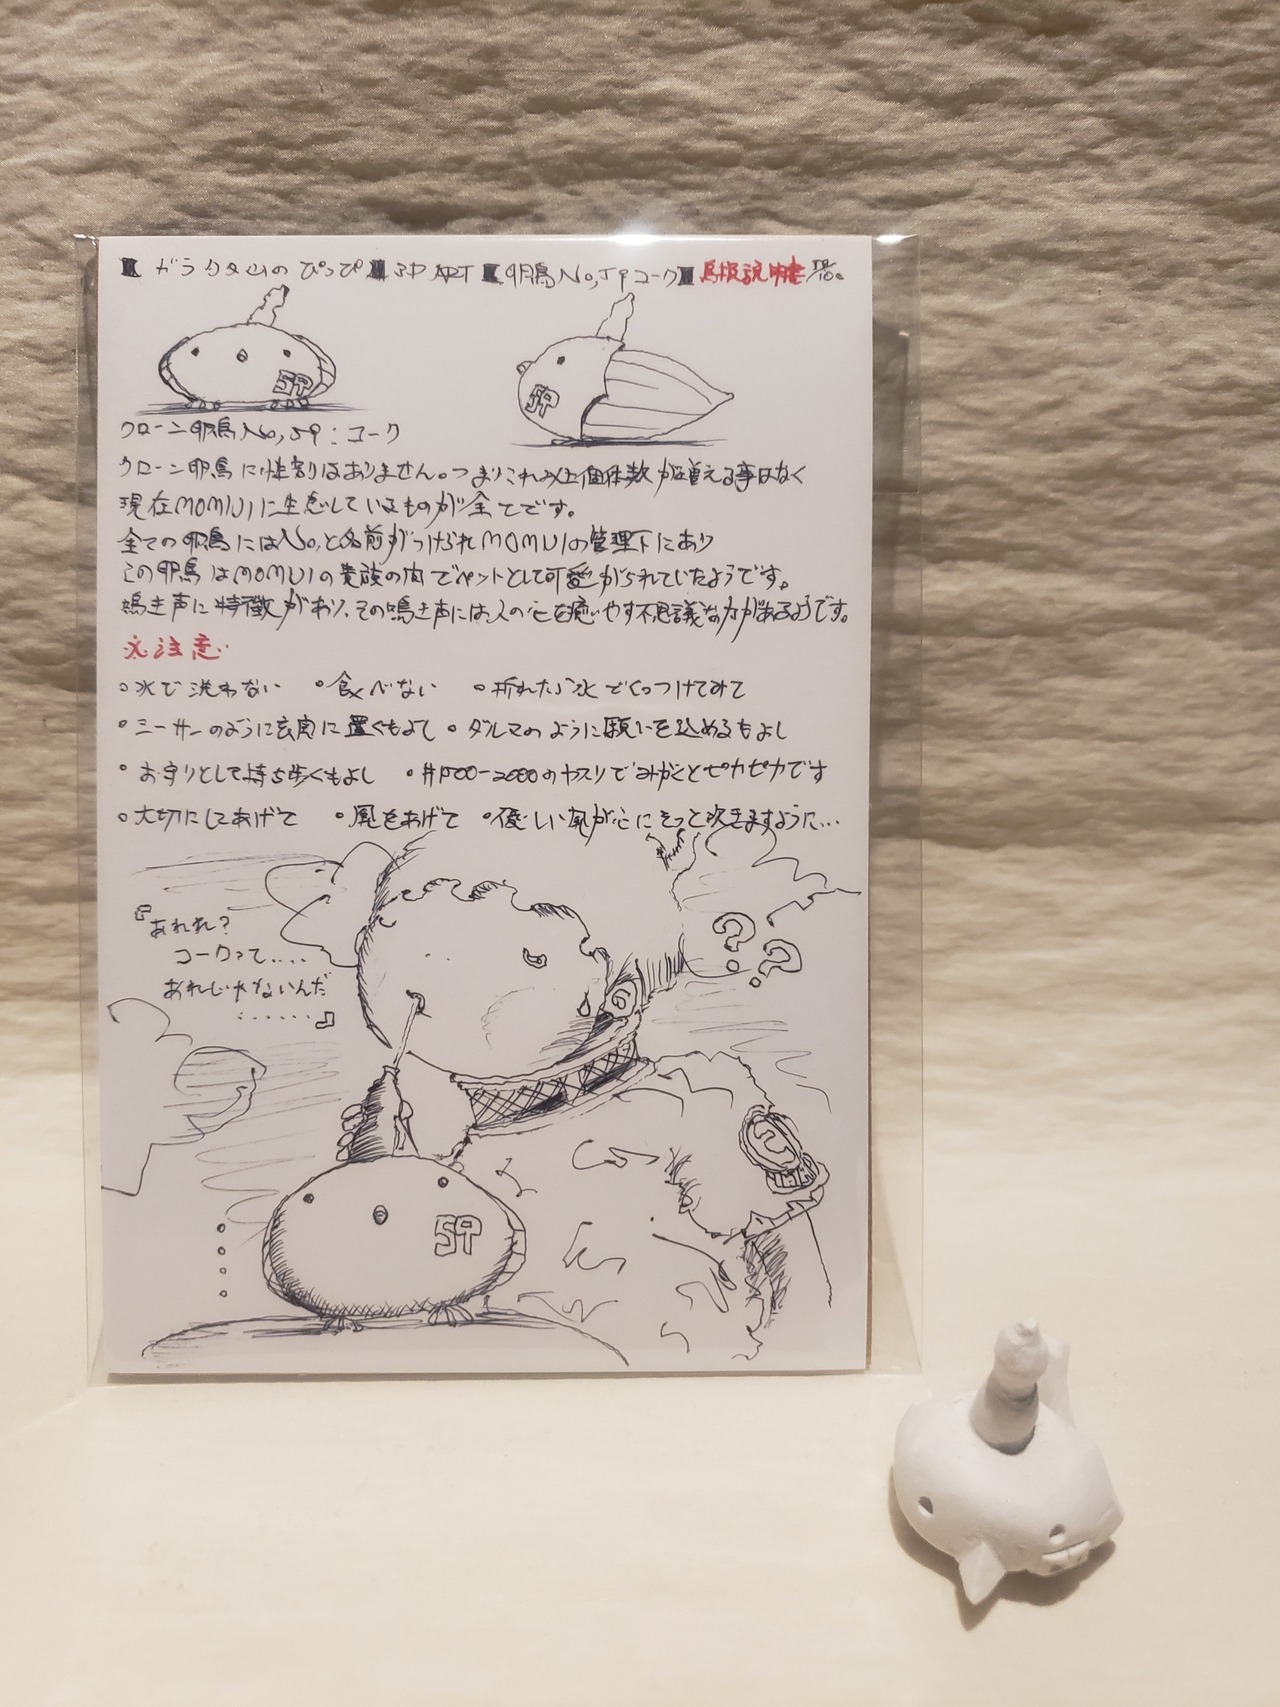 ガラクタ山のぴっぴ 3D ART 卵鳥No,59コーク 鳥扱説明書 59/100
59
59
クローン卵鳥No,59:コーク
クローン卵鳥に性別はありません。つまりこれ以上個体数が増える事はなく
現在MOMIJIに生息しているものが全てです。
全ての卵鳥にはNo,と名前がつけられMOMIJIの管理下にあり
この卵鳥はMOMIJIの貴族の間でペットとして可愛がられていたようです。
鳴き声に特徴があり、その鳴き声には人の心を癒やす不思議な力があるようです。
※注意
○水で洗わない ○食べない ○折れたら水でくっつけてみて
○シーサーのように玄関に置くもよし ○ダルマのように願いを込めるもよし
○お守りとして持ち歩くもよし ○#1500-2000のヤスリでみがくとピカピカです
○大切にしてあげて ○風をあげて ○優しい風が心にそっと吹きますように…
『あれれ?
コークって....
あれじゃないんだ
......』
??
59